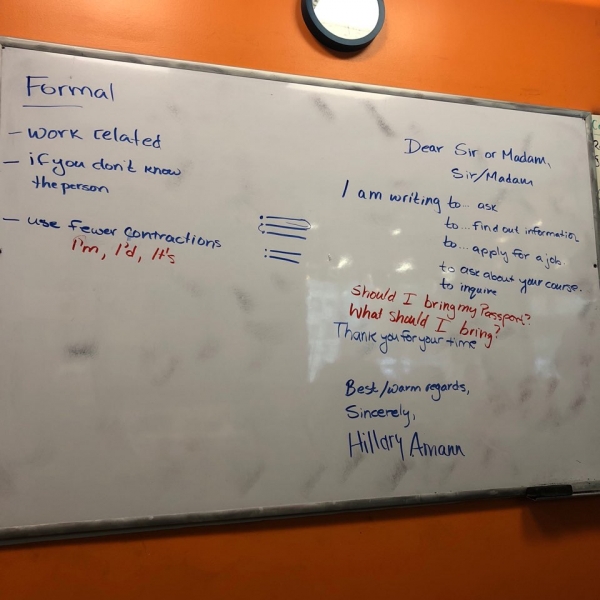 Formal
- work related
- if you don't know
the person
- use fewer contractions
I'm, I'd, It's
Dear Sir or Madam,
Sir/Madam
I am writing to... ask
to... find out information
to... apply for a job
to ask about your course.
to inquire
Should I bring my Passport?
What should I bring?
Thank you for your time
Best/warm regards,
Sincerely,
Hillary Amann